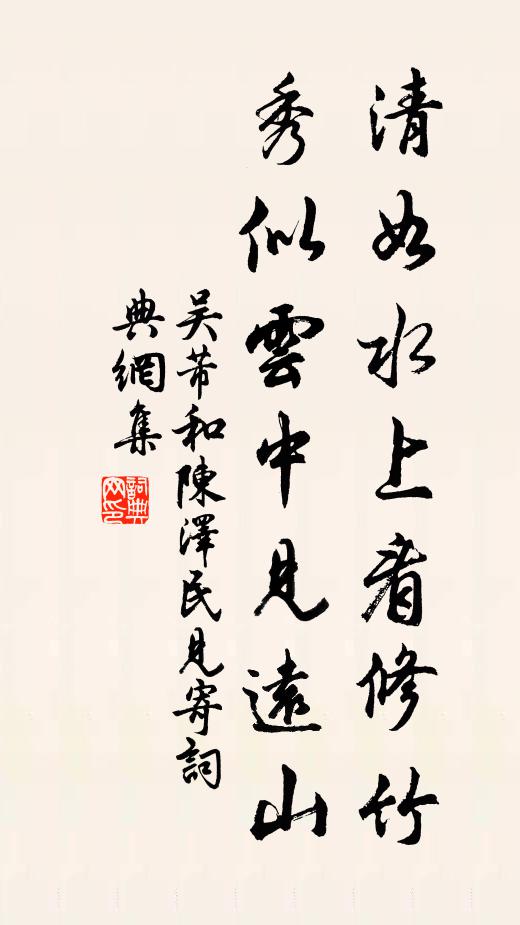 清如水上看修竹
秀似雲中見遠山
吴芾和陳澤民見寄詞
典網集
詞典網印